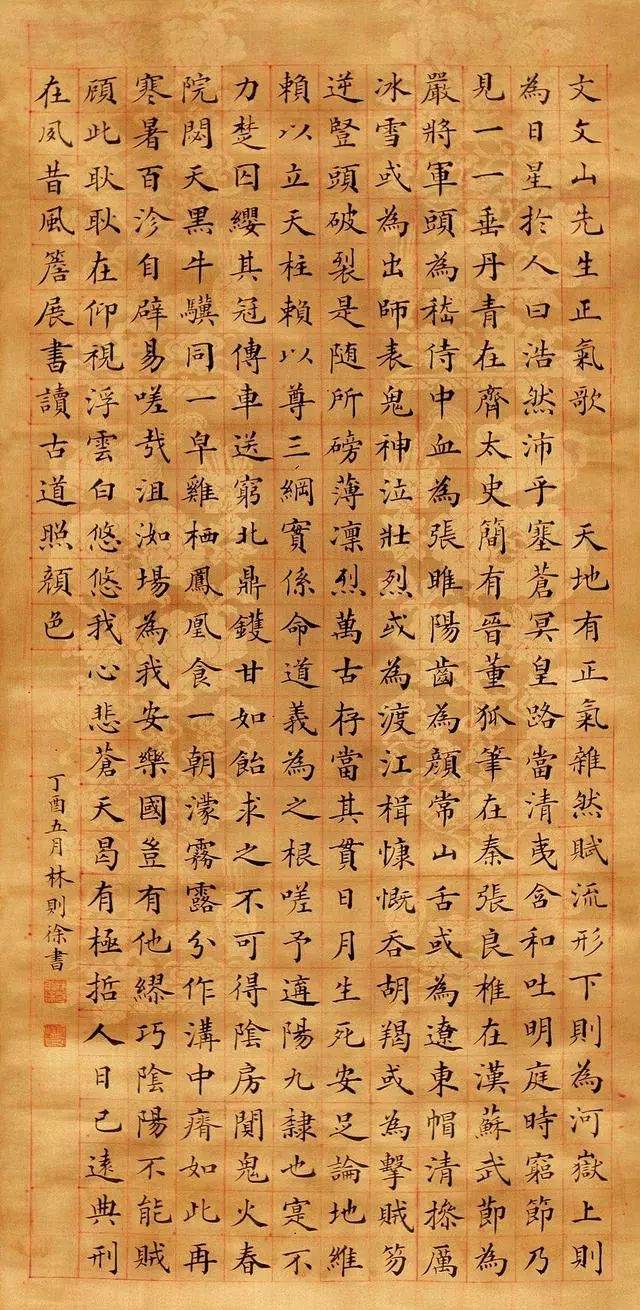 文文山先生正氣歌　天地有正氣雜然賦流形下則為河嶽上則
為日星於人曰浩然沛乎塞蒼冥皇路當清夷含和吐明庭時窮節乃
見一一垂丹青在齊太史簡有晉董狐筆在秦張良椎在漢蘇武節為
嚴將軍頭為嵇侍中血為張睢陽齒為顏常山舌或為遼東帽清操厲
冰雪或為出師表鬼神泣壯烈或為渡江楫慷慨吞胡羯或為擊賊笏
逆豎頭破裂是随所磅薄凜烈萬古存當其貫日月生死安足論地維
賴以立天柱賴以尊三綱實係命道義為之根嗟予遘陽九隸也寔不
力楚囚纓其冠傳車送窮北鼎鑊甘如飴求之不可得陰房閴鬼火春
院閟天黑牛驥同一皁雞栖鳳凰食一朝濛霧露分作溝中瘠如此再
寒暑百沴自辟易嗟哉沮洳場為我安樂國豈有他繆巧陰陽不能賊
顧此耿耿在仰視浮雲白悠悠我心悲蒼天曷有極哲人日已遠典刑
在夙昔風簷展書讀古道照顏色
丁酉五月林則徐書